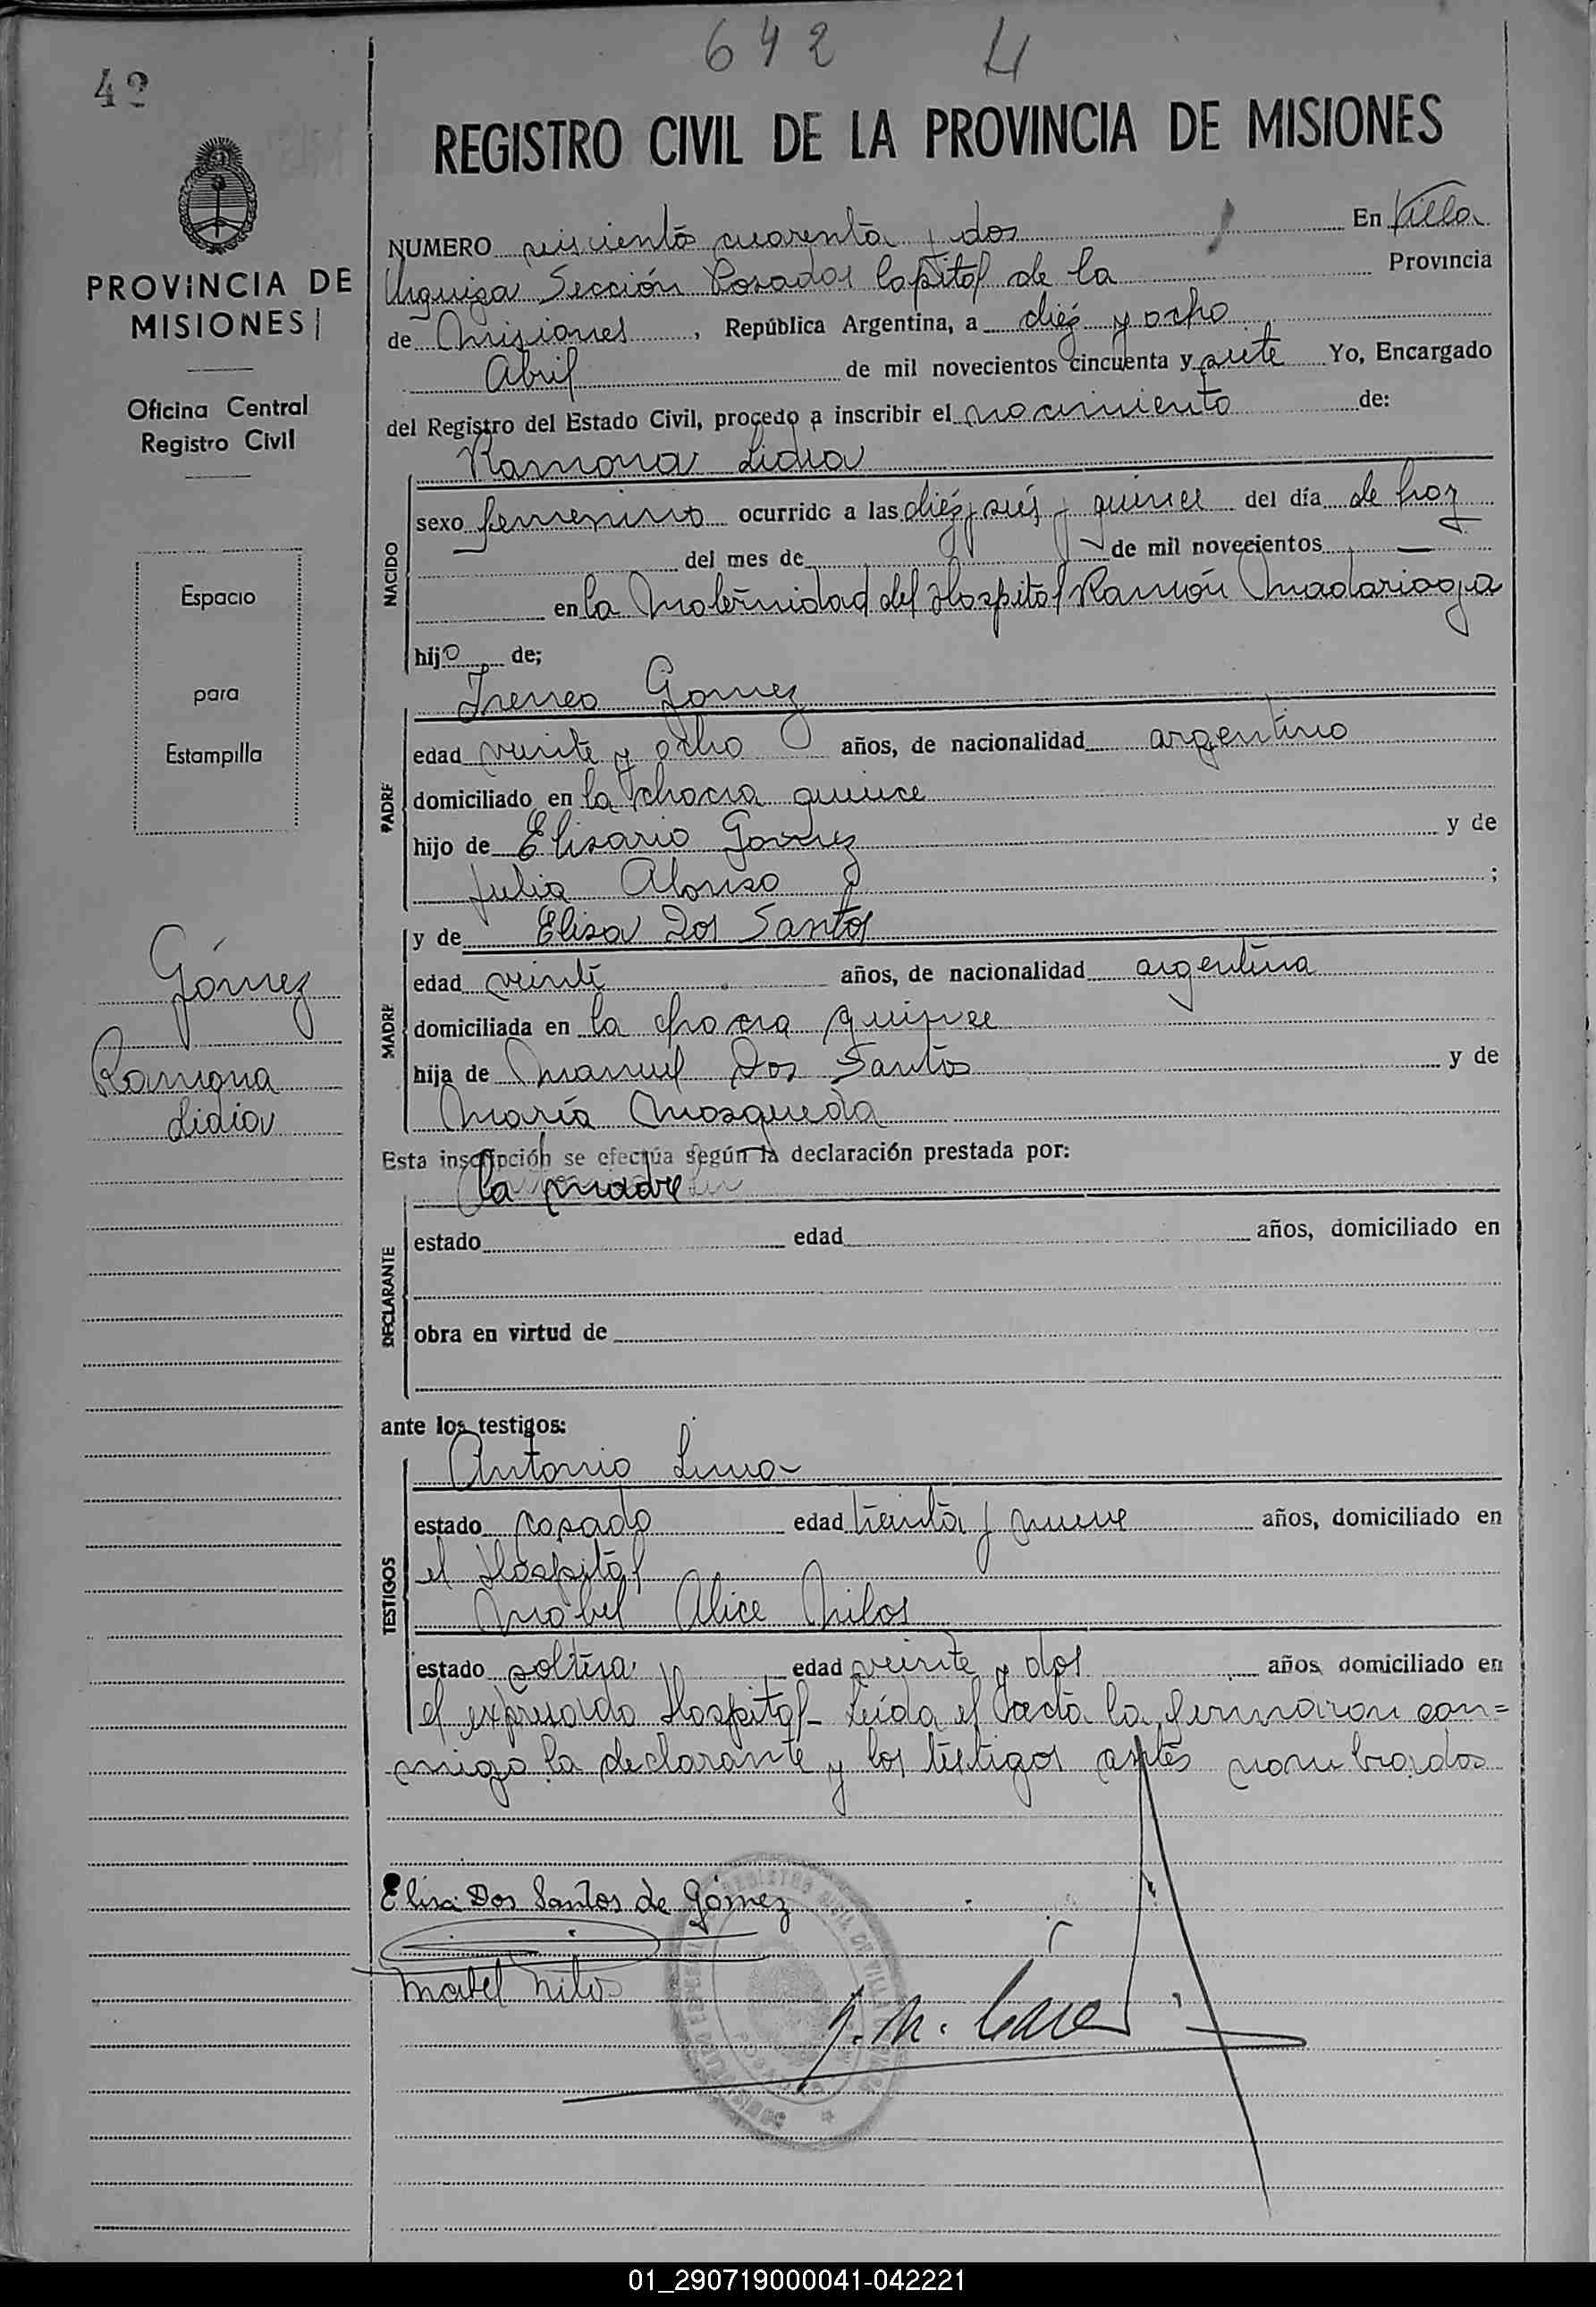 642 4
42
REGISTRO CIVIL DE LA PROVINCIA DE MISIONES
PROVINCIA DE
MISIONES
Oficina Central
Registro Civil
Espacio
para
Estampilla
Gómez
Ramona
Lidia
NUMERO seiscientos cuarenta y dos En Villa
Urquiza Sección Posadas Capital de la Provincia
de Misiones, República Argentina, a diéz y ocho
Abril de mil novecientos cincuenta y siete Yo, Encargado
del Registro del Estado Civil, procedo a inscribir el nacimiento de:
Ramona Lidia
NACIDO
sexo femenino ocurrido a las diéz y seis y quince del día de hoy
del mes de de mil novecientos
en la Maternidad del Hospital Ramón Madariaga
hijo de;
Ireneo Gomez
PADRE
edad veinte y ocho años, de nacionalidad argentino
domiciliado en la chacra quince
hijo de Elisario Gomez y de
Julia Alonso ;
y de Elisa Dos Santos
MADRE
edad veinte años, de nacionalidad argentina
domiciliada en la chacra quince
hija de Manuel Dos Santos y de
María Mosqueda
Esta inscripción se efectúa según la declaración prestada por:
la madre
DECLARANTE
estado edad años, domiciliado en
obra en virtud de
ante los testigos:
Antonio Lima
TESTIGOS
estado casado edad treinta y nueve años, domiciliado en
el Hospital
Mabel Alice Milos
estado soltera edad veinte y dos años domiciliado en
el expresado Hospital - Leída el acta la firmaron con=
migo la declarante y los testigos antes nombrados
Elisa Dos Santos de Gómez
Mabel Milos
01_290719000041-042221